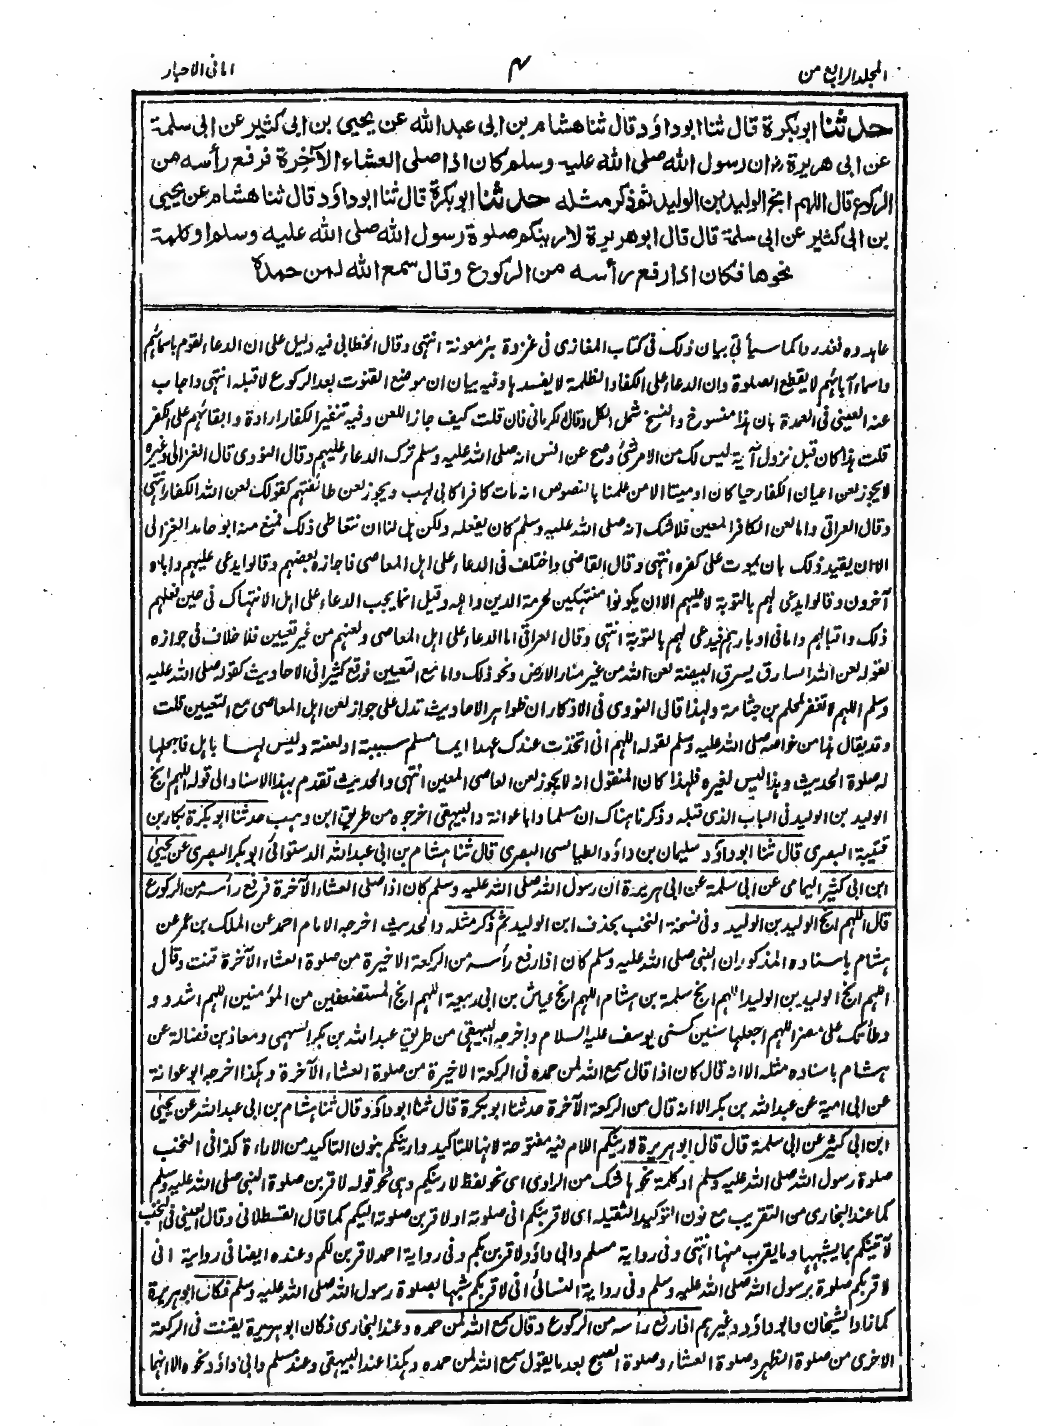 المجلد الرابع من
۴
امانى الاحبار
حدثنا ابوبكرة قال ثنا ابو داؤد قال ثنا هشام بن ابى عبد الله عن يحيى بن ابى كثير عن ابى سلمة
عن ابى هريرة رض ان رسول الله صلى الله عليه وسلم كان اذا صلى العشاء الآخرة فرفع رأسه من
الركوع قال اللهم انج الوليد بن الوليد ثم ذكر مثله حدثنا ابو بكرة قال ثنا ابو داؤد قال ثنا هشام عن يحيى
بن ابى كثير عن ابى سلمة قال قال ابو هريرة لارينكم صلوة رسول الله صلى الله عليه وسلم او كلمة
نحوها فكان اذا رفع رأسه من الركوع وقال سمع الله لمن حمدة
عاهدوه فغدروا كما سيأتى بيان ذلك فى كتاب المغازى فى غزوة بئر معونة انتهى وقال الخطابى فيه دليل على ان الدعاء لقوم باسمائهم
واسماء آبائهم لا يقطع الصلوة وان الدعاء على الكفار والظلمة لا يفسدها وفيه بيان ان موضع القنوت بعد الركوع لا قبله انتهى واجاب
عنه العينى فى العمدة بان هذا منسوخ والنسخ شمل الكل وقال الكرمانى فان قلت كيف جاز اللعن وفيه تنفير الكفار ارادة وابقائهم على الكفر
قلت هذا كان قبل نزول آية ليس لك من الامر شئ وصح عن انس انه صلى الله عليه وسلم ترك الدعاء عليهم وقال النووى قال الغزالى وغيره
لا يجوز لعن اعيان الكفار حيا كان او ميتا الا من علمنا بالنصوص انه مات كافرا كابى لهب ويجوز لعن طائفتهم كقولك لعن الله الكفار انتهى
وقال العراقى واما لعن الكافر المعين فلا شك انه صلى الله عليه وسلم كان يفعله ولكن هل لنا ان نتعاطى ذلك فمنع منه ابو حامد الغزالى
الا ان يقيد ذلك بان يموت على كفره انتهى وقال القاضى واختلف فى الدعاء على اهل المعاصى فاجازه بعضهم وقالوا يدعى عليهم واباه
آخرون وقالوا يدعى لهم بالتوبة لا عليهم الا ان يكونوا منتهكين لحرمة الدين واهله وقيل انما يجب الدعاء على اهل الانتهاك فى حين فعلهم
ذلك واقبالهم واما فى ادبارهم فيدعى لهم بالتوبة انتهى وقال العراقى اما الدعاء على اهل المعاصى ولعنهم من غير تعيين فلا خلاف فى جوازه
لقوله لعن الله السارق يسرق البيضة لعن الله من غير منار الارض ونحو ذلك واما مع التعيين فوقع كثيرا فى الاحاديث كقوله صلى الله عليه
وسلم اللهم لا تغفر لمحلم بن جثامة ولهذا قال النووى فى الاذكار ان ظواهر الاحاديث تدل على جواز لعن اهل المعاصى مع التعيين قلت
وقد يقال هذا من خواصه صلى الله عليه وسلم لقوله اللهم انى اتخذت عندك عهدا ايما مسلم سببته او لعنته وليس لها باهل فاجعلها
له صلوة الحديث وهذا ليس لغيره فلهذا كان المنقول انه لا يجوز لعن العاصى المعين انتهى والحديث تقدم بهذا الاسناد الى قوله اللهم انج
الوليد بن الوليد فى الباب الذى قبله وذكرنا هناك ان مسلما وابا عوانة والبيهقى اخرجوه من طريق ابن وهب حدثنا ابو بكرة بكار بن
قتيبة البصرى قال ثنا ابو داؤد سليمان بن داؤد الطيالسى البصرى قال ثنا هشام بن ابى عبد الله الدستوائى ابو بكر البصرى عن يحيى
ابن ابى كثير اليمامى عن ابى سلمة عن ابى هريرة ان رسول الله صلى الله عليه وسلم كان اذا صلى العشاء الآخرة فرفع رأسه من الركوع
قال اللهم انج الوليد بن الوليد وفى نسخة النخب بحذف ابن الوليد ثم ذكر مثله والحديث اخرجه الامام احمد عن عبد الملك بن عمر عن
هشام باسناده المذكور ان النبى صلى الله عليه وسلم كان اذا رفع رأسه من الركعة الاخيرة من صلوة العشاء الآخرة قنت وقال
اللهم انج الوليد بن الوليد اللهم انج سلمة بن هشام اللهم انج عياش بن ابى ربيعة اللهم انج المستضعفين من المؤمنين اللهم اشدد و
وطأتك على مضر اللهم اجعلها سنين كسنى يوسف عليه السلام واخرجه البيهقى من طريق عبد الله بن بكر السهمى ومعاذ بن فضالة عن
هشام باسناده مثله الا انه قال كان اذا قال سمع الله لمن حمده فى الركعة الاخيرة من صلوة العشاء الآخرة وهكذا اخرجه ابو عوانة
عن ابى امية عن عبد الله بن بكر الا انه قال من الركعة الآخرة حدثنا ابو بكرة قال ثنا ابو داؤد قال ثنا هشام بن ابى عبد الله عن يحيى
ابن ابى كثير عن ابى سلمة قال قال ابو هريرة لارينكم اللام فيه مفتوحة لانها للتاكيد وارينكم بنون التاكيد من الاراءة كذا فى النخب
صلوة رسول الله صلى الله عليه وسلم او كلمة نحوها شك من الراوى اى نحو لفظ لارينكم وهى نحو قوله لاقربن صلوة النبى صلى الله عليه وسلم
كما عند البخارى من التقريب مع نون التوكيد الثقيلة اى لاقربنكم الى صلوته او لاقربن صلوته اليكم كما قال القسطلانى وقال العينى فى النخب
لآتينكم بما يشبهها وما يقرب منها انتهى وفى رواية مسلم وابى داؤد لاقربن بكم وفى رواية احمد لاقربن لكم وعنده ايضا فى رواية انى
لاقربكم صلوة برسول الله صلى الله عليه وسلم وفى رواية النسائى انى لاقربكم شبها بصلوة رسول الله صلى الله عليه وسلم فكان ابو هريرة
كما زاد الشيخان وابو داؤد وغيرهم اذا رفع رأسه من الركوع وقال سمع الله لمن حمده وعند البخارى فكان ابو هريرة يقنت فى الركعة
الاخرى من صلوة الظهر وصلوة العشاء وصلوة الصبح بعد ما يقول سمع الله لمن حمده وهكذا عند البيهقى وعند مسلم وابى داؤد نحوه الا انهما